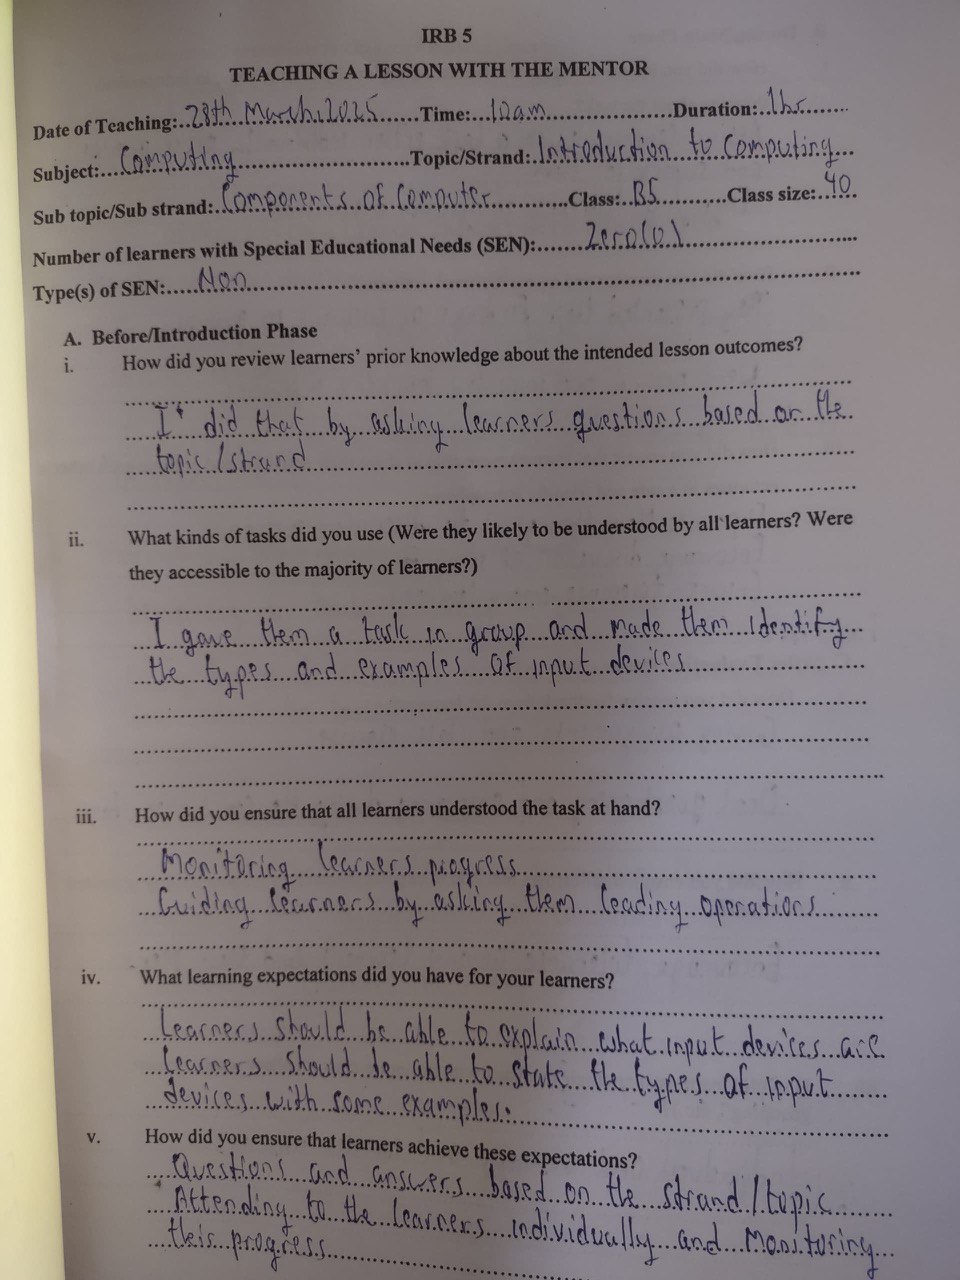 IRB 5
TEACHING A LESSON WITH THE MENTOR
Date of Teaching:..28th March, 2025......Time:...10am......................Duration:..1hr.......
Subject:...Computing..............................Topic/Strand:.Introduction to Computing...
Sub topic/Sub strand:.Components of Computer............Class:..B5...........Class size:.40.
Number of learners with Special Educational Needs (SEN):.......Zero(0)...........................
Type(s) of SEN:.....Non...............................................................................
A. Before/Introduction Phase
i. How did you review learners' prior knowledge about the intended lesson outcomes?
I did that by asking learners questions based on the
topic/strand
ii. What kinds of tasks did you use (Were they likely to be understood by all learners? Were
they accessible to the majority of learners?)
I gave them a task in group and made them identify
the types and examples of input devices
iii. How did you ensure that all learners understood the task at hand?
Monitoring learners progress
Guiding learners by asking them leading operations
iv. What learning expectations did you have for your learners?
Learners should be able to explain what input devices are
Learners should be able to state the types of input
devices with some examples.
v. How did you ensure that learners achieve these expectations?
Questions and answers based on the strand/topic
Attending to the learners individually and monitoring
their progress